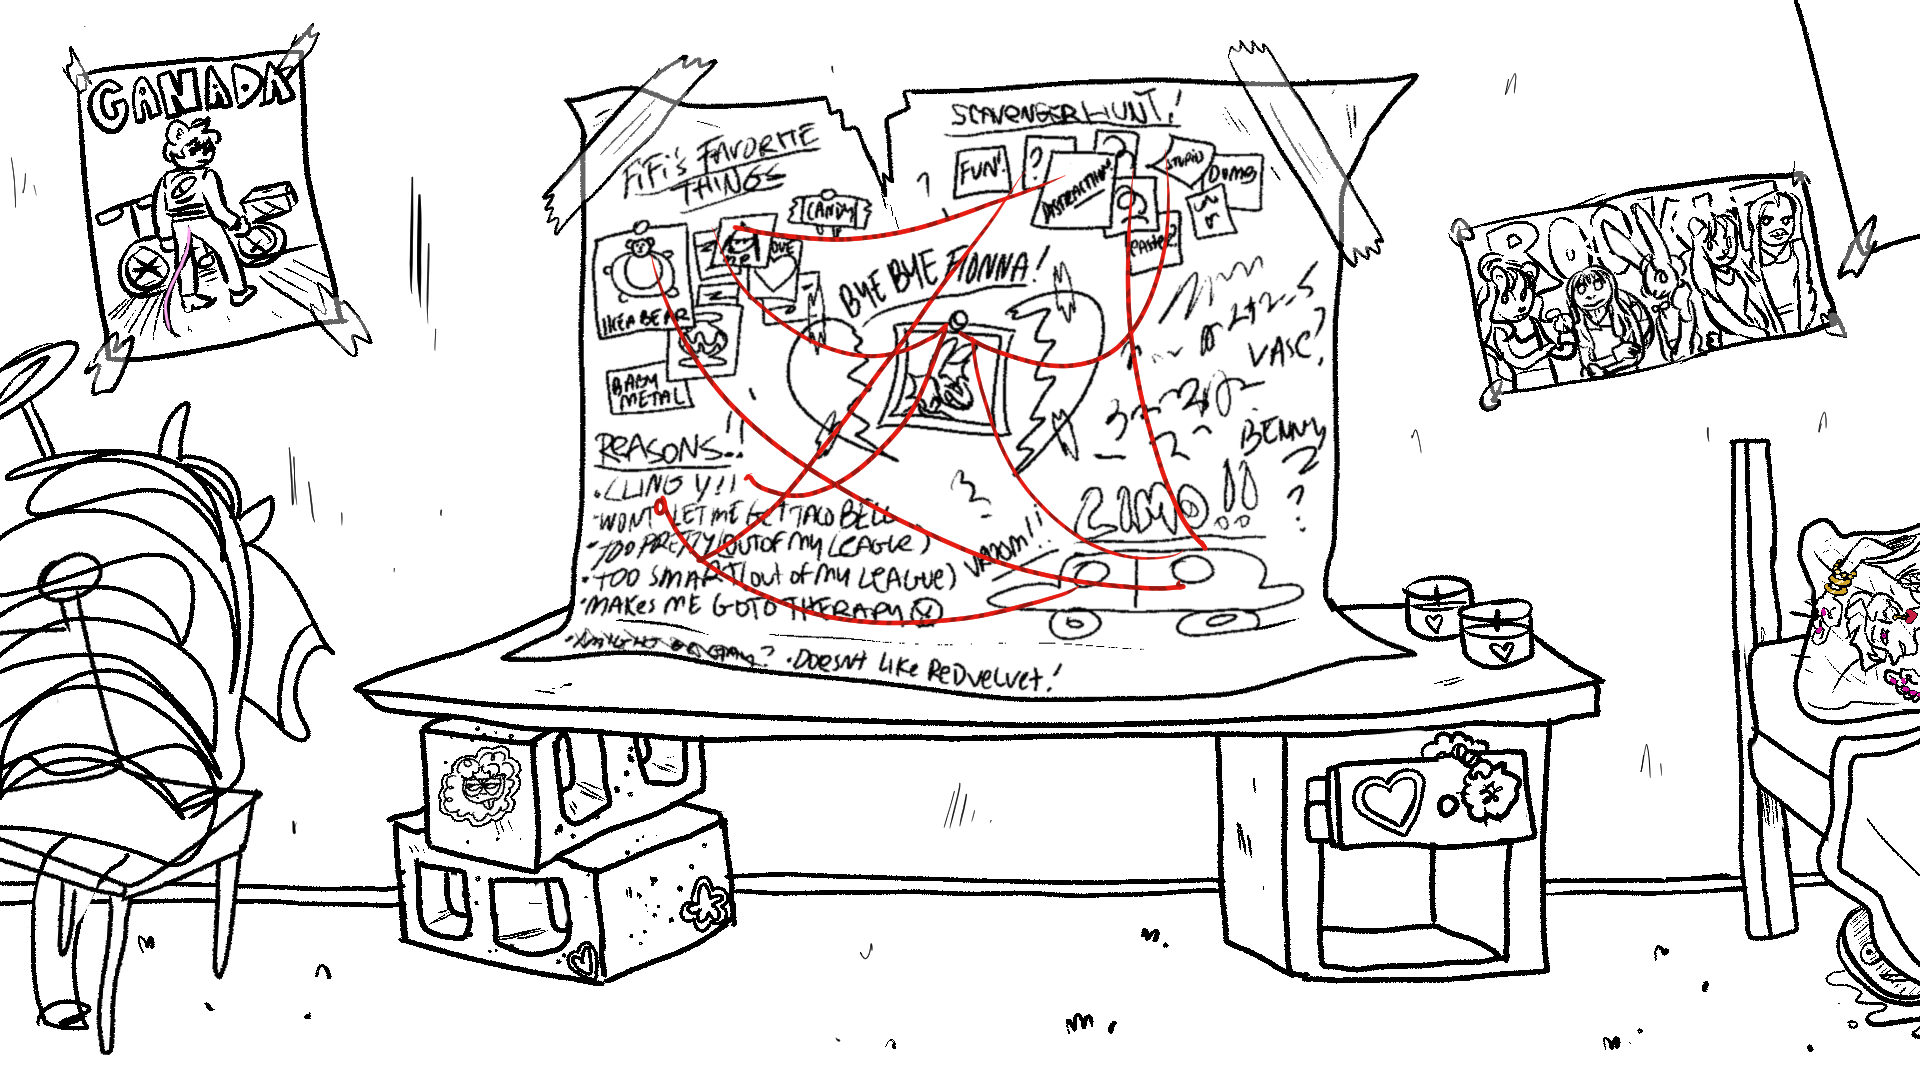 GANADA
FIFI'S FAVORITE
THINGS
CANDY
IKEA BEAR
BABY
METAL
SCAVENGER HUNT!
?
FUN!
?
DISTRACTION
STUPID
DUMB
BYE BYE FIONNA!
VASC?
BENNY
?
?
LIMO!!
VROOM!!
REASONS!!
·CLINGY!!
·WONT LET ME GET TACO BELL
·TOO PRETTY (OUT OF MY LEAGUE)
·TOO SMART (OUT OF MY LEAGUE)
·MAKES ME GO TO THERAPY
·DOESNT LIKE REDVELVET!